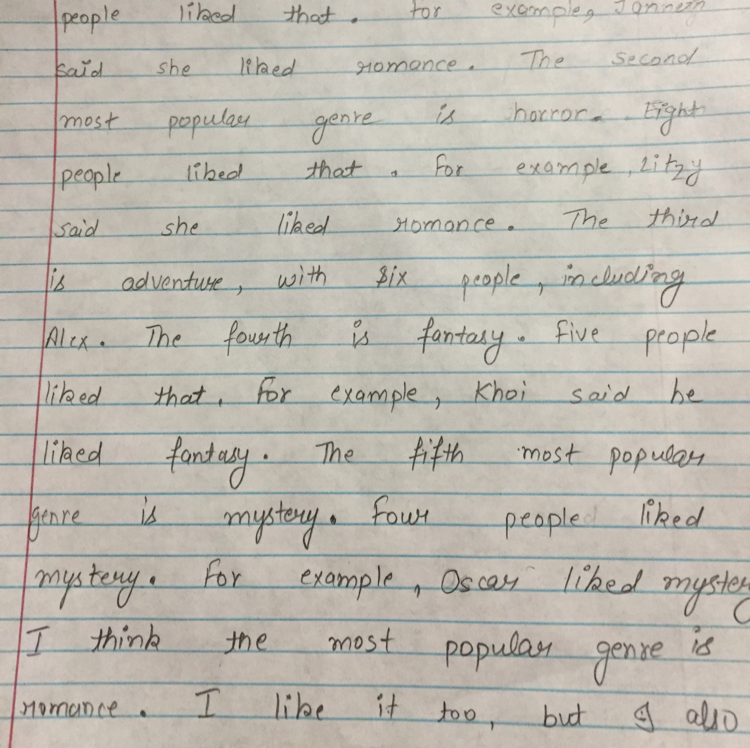 people liked that. For example, Janneth
said she liked romance. The second
most popular genre is horror. Eight
people liked that. For example, Litzy
said she liked romance. The third
is adventure, with six people, including
Alex. The fourth is fantasy. Five people
liked that. For example, Khoi said he
liked fantasy. The fifth most popular
genre is mystery. Four people liked
mystery. For example, Oscar liked mystery
I think the most popular genre is
romance. I like it too, but I also